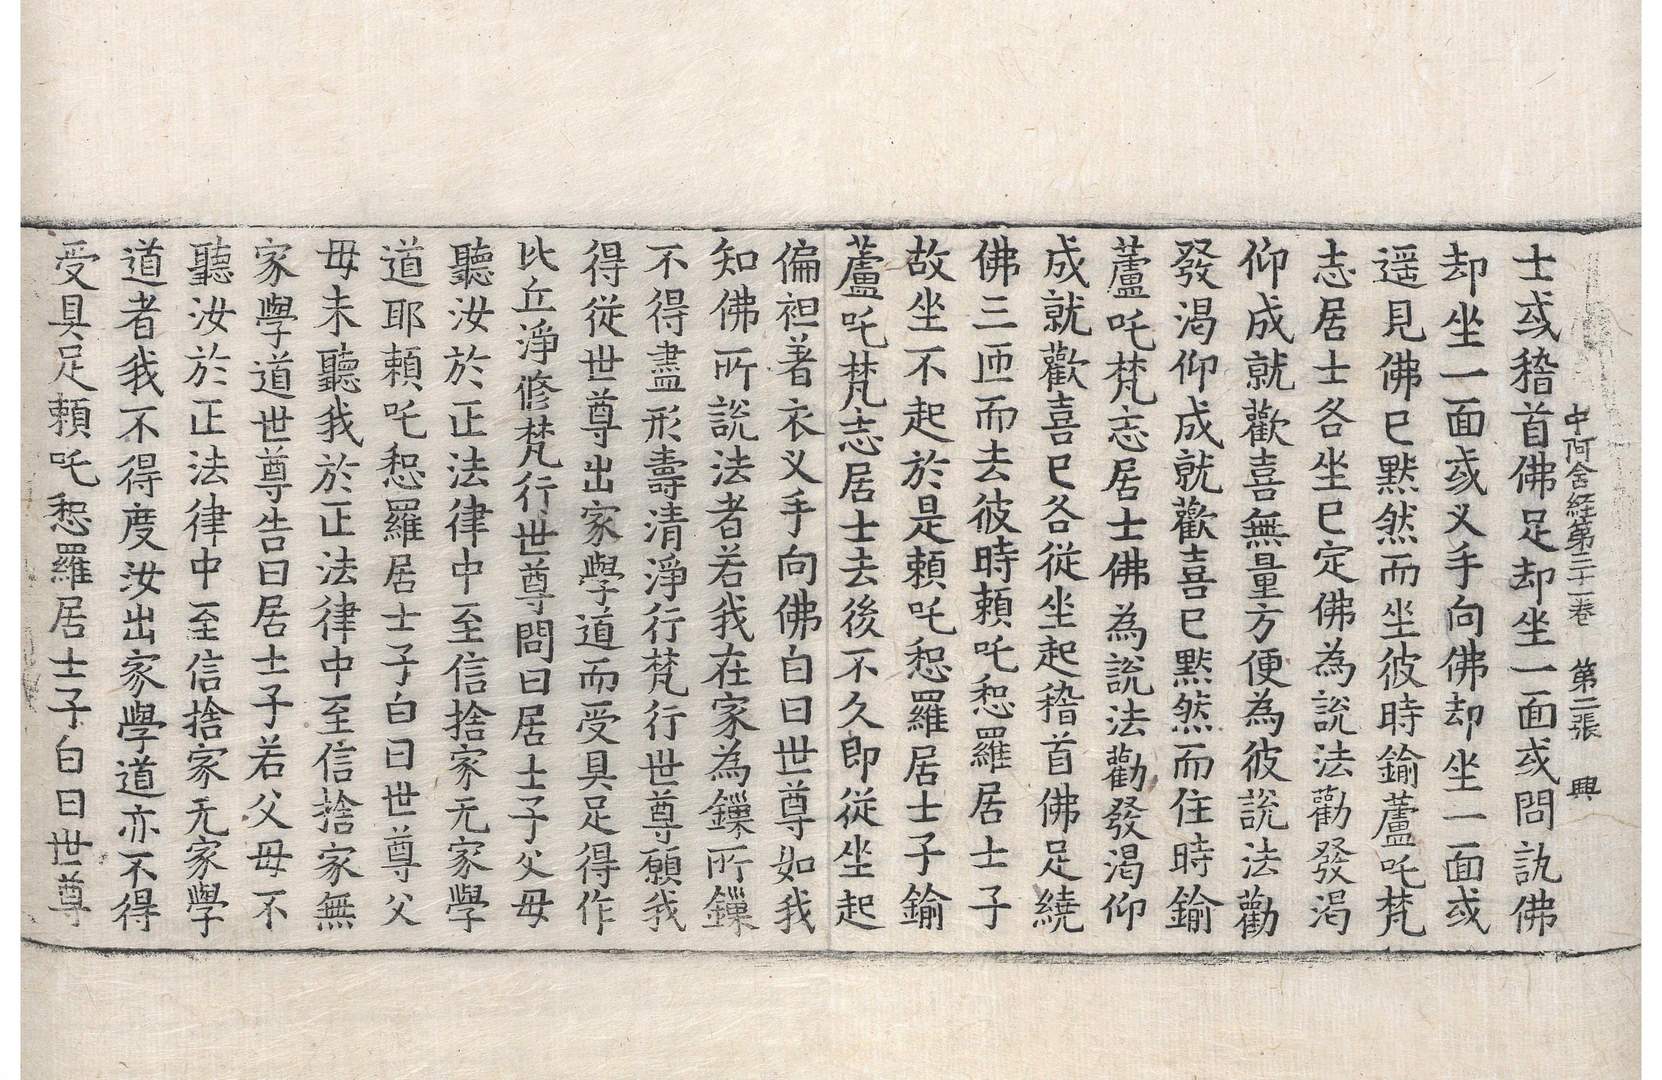 中阿含経第三十一卷 第二張 興
士或稽首佛足却坐一面或問訊佛
却坐一面或叉手向佛却坐一面或
遥見佛已默然而坐彼時鍮蘆吒梵
志居士各坐已定佛為說法勸發渴
仰成就歡喜無量方便為彼說法勸
發渴仰成就歡喜已默然而住時鍮
蘆吒梵志居士佛為說法勸發渴仰
成就歡喜已各從坐起稽首佛足繞
佛三匝而去彼時頼吒惒羅居士子
故坐不起於是頼吒惒羅居士子鍮
蘆吒梵志居士去後不久即從坐起
偏袒著衣叉手向佛白曰世尊如我
知佛所說法者若我在家為鏁所鏁
不得盡形壽清淨行梵行世尊願我
得從世尊出家學道而受具足得作
比丘淨修梵行世尊問曰居士子父母
聽汝於正法律中至信捨家无家學
道耶頼吒惒羅居士子白曰世尊父
母未聽我於正法律中至信捨家無
家學道世尊告曰居士子若父母不
聽汝於正法律中至信捨家无家學
道者我不得度汝出家學道亦不得
受具足頼吒惒羅居士子白曰世尊